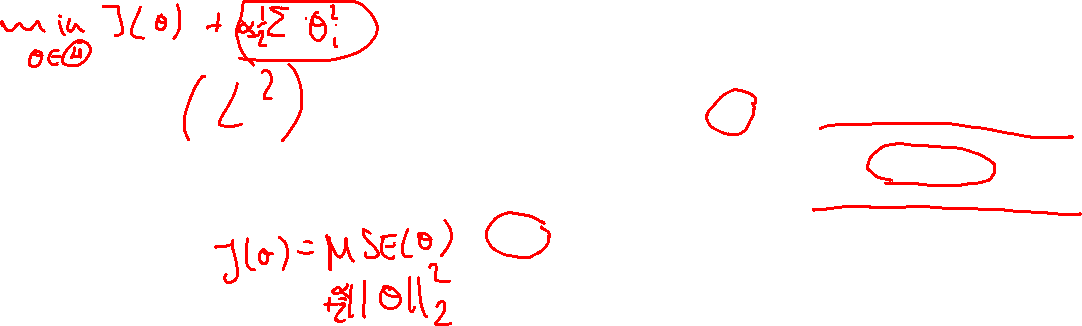 min J(θ) + α½Σ θᵢ²
θ∈Θ
(L²)
J(θ) = MSE(θ)
+α/2||θ||₂²